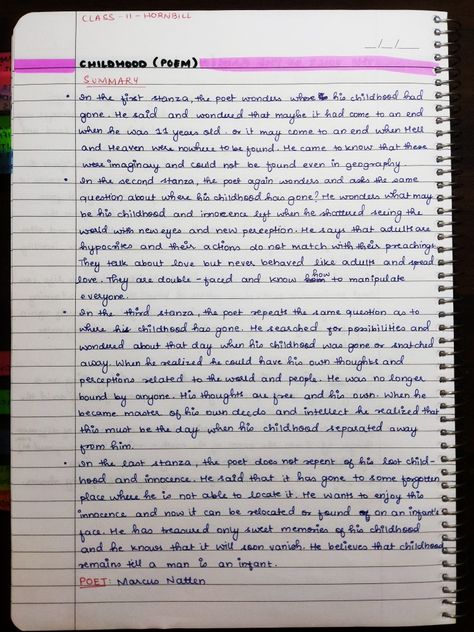 CLASS - 11 - HORNBILL
CHILDHOOD (POEM)
SUMMARY
• In the first stanza, the poet wonders where his childhood had
gone. He said and wondured that maybe it had come to an end
when he was 11 years old. or it may come to an end when Hell
and Heaven were nowhere to be found. He came to know that these
were imaginary and could not be found even in geography.
• In the second stanza, the poet again wonders and asks the same
question about where his childhood has gone? He wonders what may
be his childhood and innocence left when he shattered seeing the
world with new eyes and new perception. He says that adults are
hypocrites and their actions do not match with their preachings.
They talk about love but never behaved like adults and spread
love. They are double-faced and know how to manipulate
everyone.
• In the third stanza, the poet repeats the same question as to
where his childhood has gone. He searched for possibilities and
wondured about that day when his childhood was gone or snatched
away. When he realized he could have his own thoughts and
perceptions related to the world and people. He was no longer
bound by anyone. His thoughts are free and his own. When he
became master of his own deeds and intellect he realized that
this must be the day when his childhood separated away
from him.
• In the last stanza, the poet does not repent of his lost child-
hood and innocence. He said that it has gone to some forgotten
place where he is not able to locate it. He wants to enjoy this
innocence and now it can be relocated or found on an infant's
face. He has treasured only sweet memories of his childhood
and he knows that it will soon vanish. He believes that childhood
remains till a man is an infant.
POET: Marcus Natten